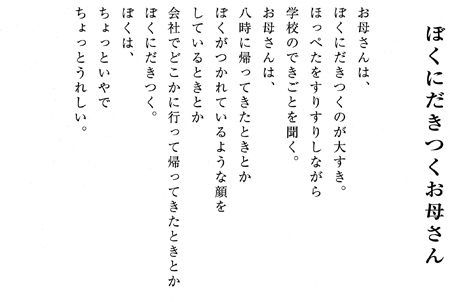 ぼくにだきつくお母さん
お母さんは、
ぼくにだきつくのが大すき。
ほっぺたをすりすりしながら
学校のできごとを聞く。
お母さんは、
八時に帰ってきたときとか
ぼくがつかれているような顔を
しているときとか
会社でどこかに行って帰ってきたときとか
ぼくにだきつく。
ぼくは、
ちょっといやで
ちょっとうれしい。